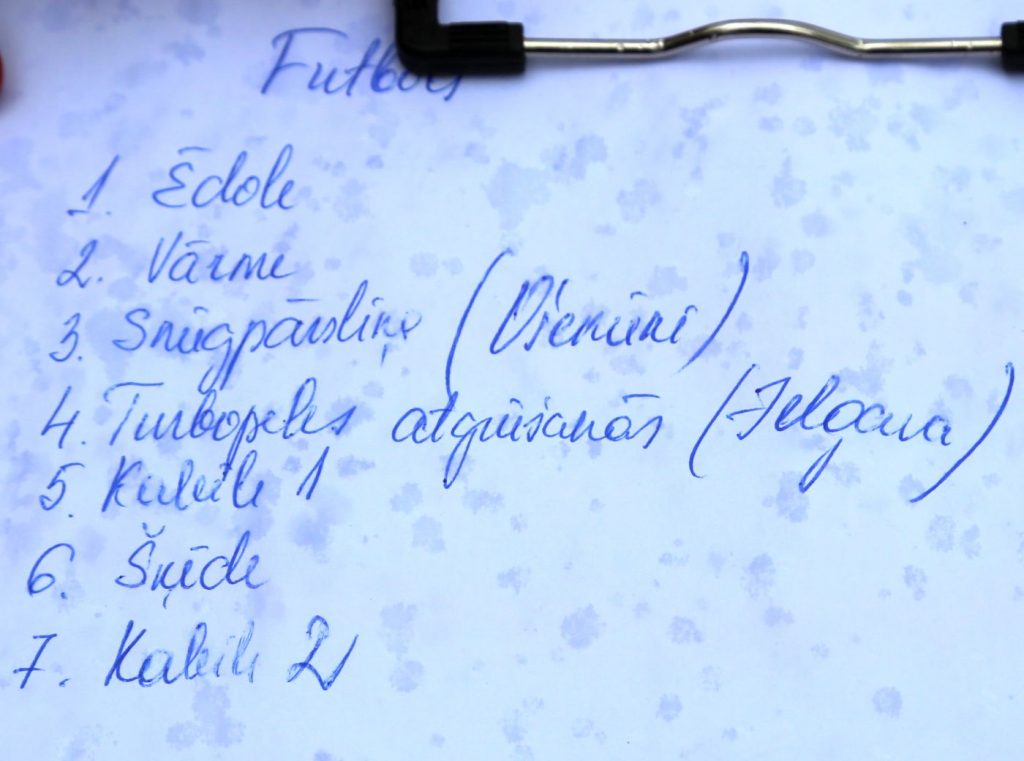 Futbols
1. Ēdole
2. Vārme
3. Sniegpārsliņa (Dieniņi)
4. Turbopeles atgriešanās (Jelgava)
5. Kabile 1
6. Šķēde
7. Kabile 2